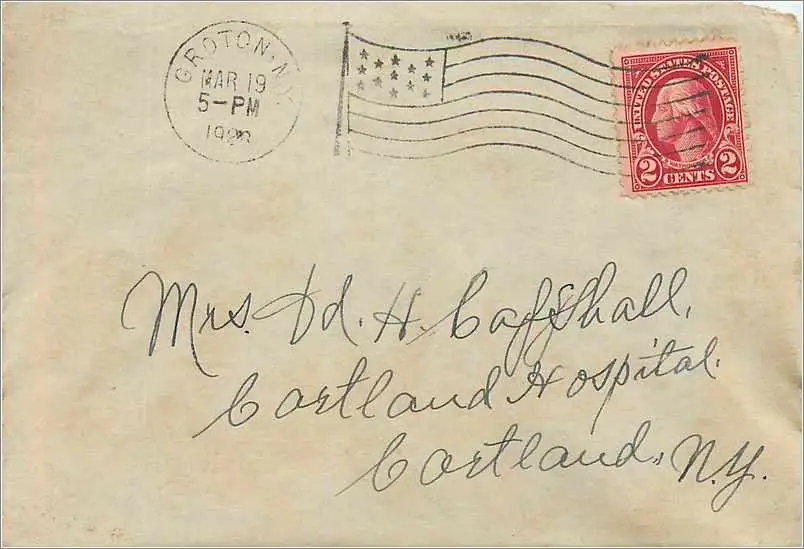 GROTON, N.Y.
MAR 19
5-PM
UNITED STATES POSTAGE
2 CENTS 2
Mrs. H.
Cortland Hospital.
Cortland, N.Y.